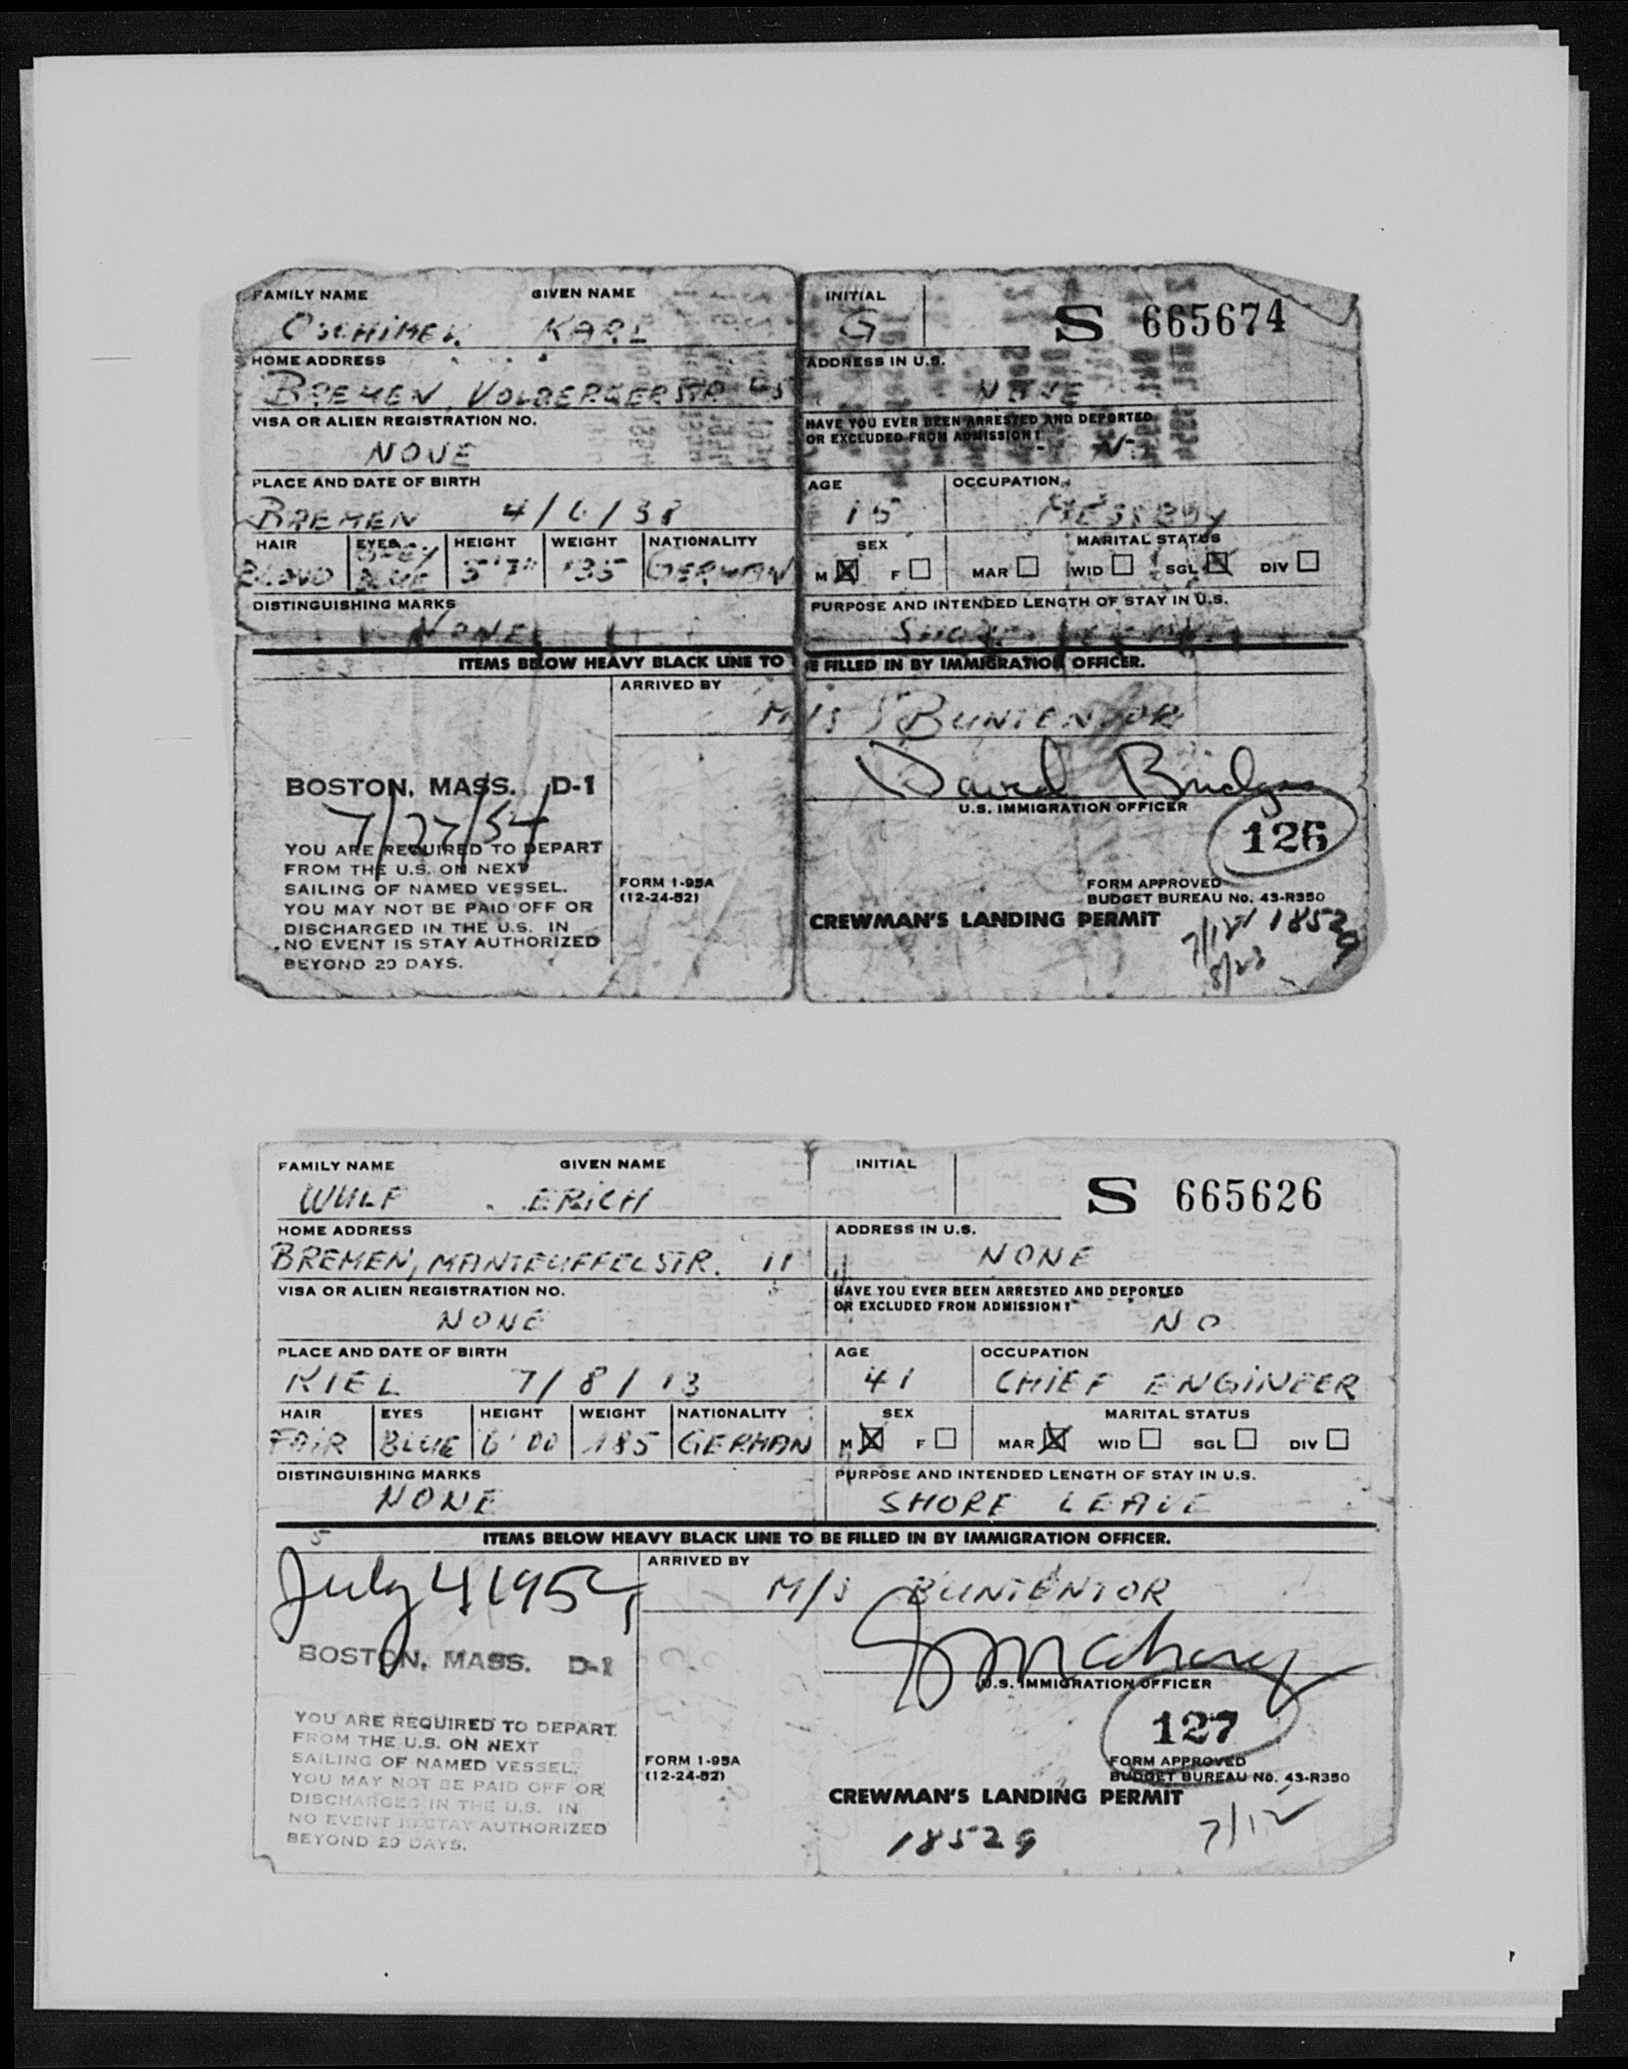 FAMILY NAME GIVEN NAME INITIAL
KARL G S 665674
HOME ADDRESS ADDRESS IN U.S.
BREMEN, NONE
VISA OR ALIEN REGISTRATION NO. HAVE YOU EVER BEEN ARRESTED AND DEPORTED
OR EXCLUDED FROM ADMISSION?
NONE
PLACE AND DATE OF BIRTH AGE OCCUPATION
BREMEN 4/6/38 15 MESSBOY
HAIR EYES HEIGHT WEIGHT NATIONALITY SEX MARITAL STATUS
BLOND GREY BLUE 5'7" 135 GERMAN M F MAR WID SGL DIV
DISTINGUISHING MARKS PURPOSE AND INTENDED LENGTH OF STAY IN U.S.
NONE SHORE LEAVE
ITEMS BELOW HEAVY BLACK LINE TO BE FILLED IN BY IMMIGRATION OFFICER.
ARRIVED BY
M/S BUNTENTOR
David Bridges
BOSTON, MASS. D-1
U.S. IMMIGRATION OFFICER
7/27/54
126
YOU ARE REQUIRED TO DEPART
FROM THE U.S. ON NEXT
SAILING OF NAMED VESSEL.
YOU MAY NOT BE PAID OFF OR
DISCHARGED IN THE U.S. IN
NO EVENT IS STAY AUTHORIZED
BEYOND 29 DAYS.
FORM I-95A
(12-24-52)
FORM APPROVED
BUDGET BUREAU No. 43-R350
CREWMAN'S LANDING PERMIT
7/12 18529
8/23
FAMILY NAME GIVEN NAME INITIAL
WULF ERICH S 665626
HOME ADDRESS ADDRESS IN U.S.
BREMEN, MANTEUFFELSTR. 11 NONE
VISA OR ALIEN REGISTRATION NO. HAVE YOU EVER BEEN ARRESTED AND DEPORTED
OR EXCLUDED FROM ADMISSION?
NONE NO
PLACE AND DATE OF BIRTH AGE OCCUPATION
KIEL 7/8/13 41 CHIEF ENGINEER
HAIR EYES HEIGHT WEIGHT NATIONALITY SEX MARITAL STATUS
FAIR BLUE 6'00 185 GERMAN M F MAR WID SGL DIV
DISTINGUISHING MARKS PURPOSE AND INTENDED LENGTH OF STAY IN U.S.
NONE SHORE LEAVE
5 ITEMS BELOW HEAVY BLACK LINE TO BE FILLED IN BY IMMIGRATION OFFICER.
ARRIVED BY
July 4 1954 M/S BUNTENTOR
BOSTON, MASS. D-1
U.S. IMMIGRATION OFFICER
127
YOU ARE REQUIRED TO DEPART
FROM THE U.S. ON NEXT
SAILING OF NAMED VESSEL.
YOU MAY NOT BE PAID OFF OR
DISCHARGED IN THE U.S. IN
NO EVENT IS STAY AUTHORIZED
BEYOND 29 DAYS.
FORM I-95A
(12-24-52)
FORM APPROVED
BUDGET BUREAU No. 43-R350
CREWMAN'S LANDING PERMIT
18529 7/12